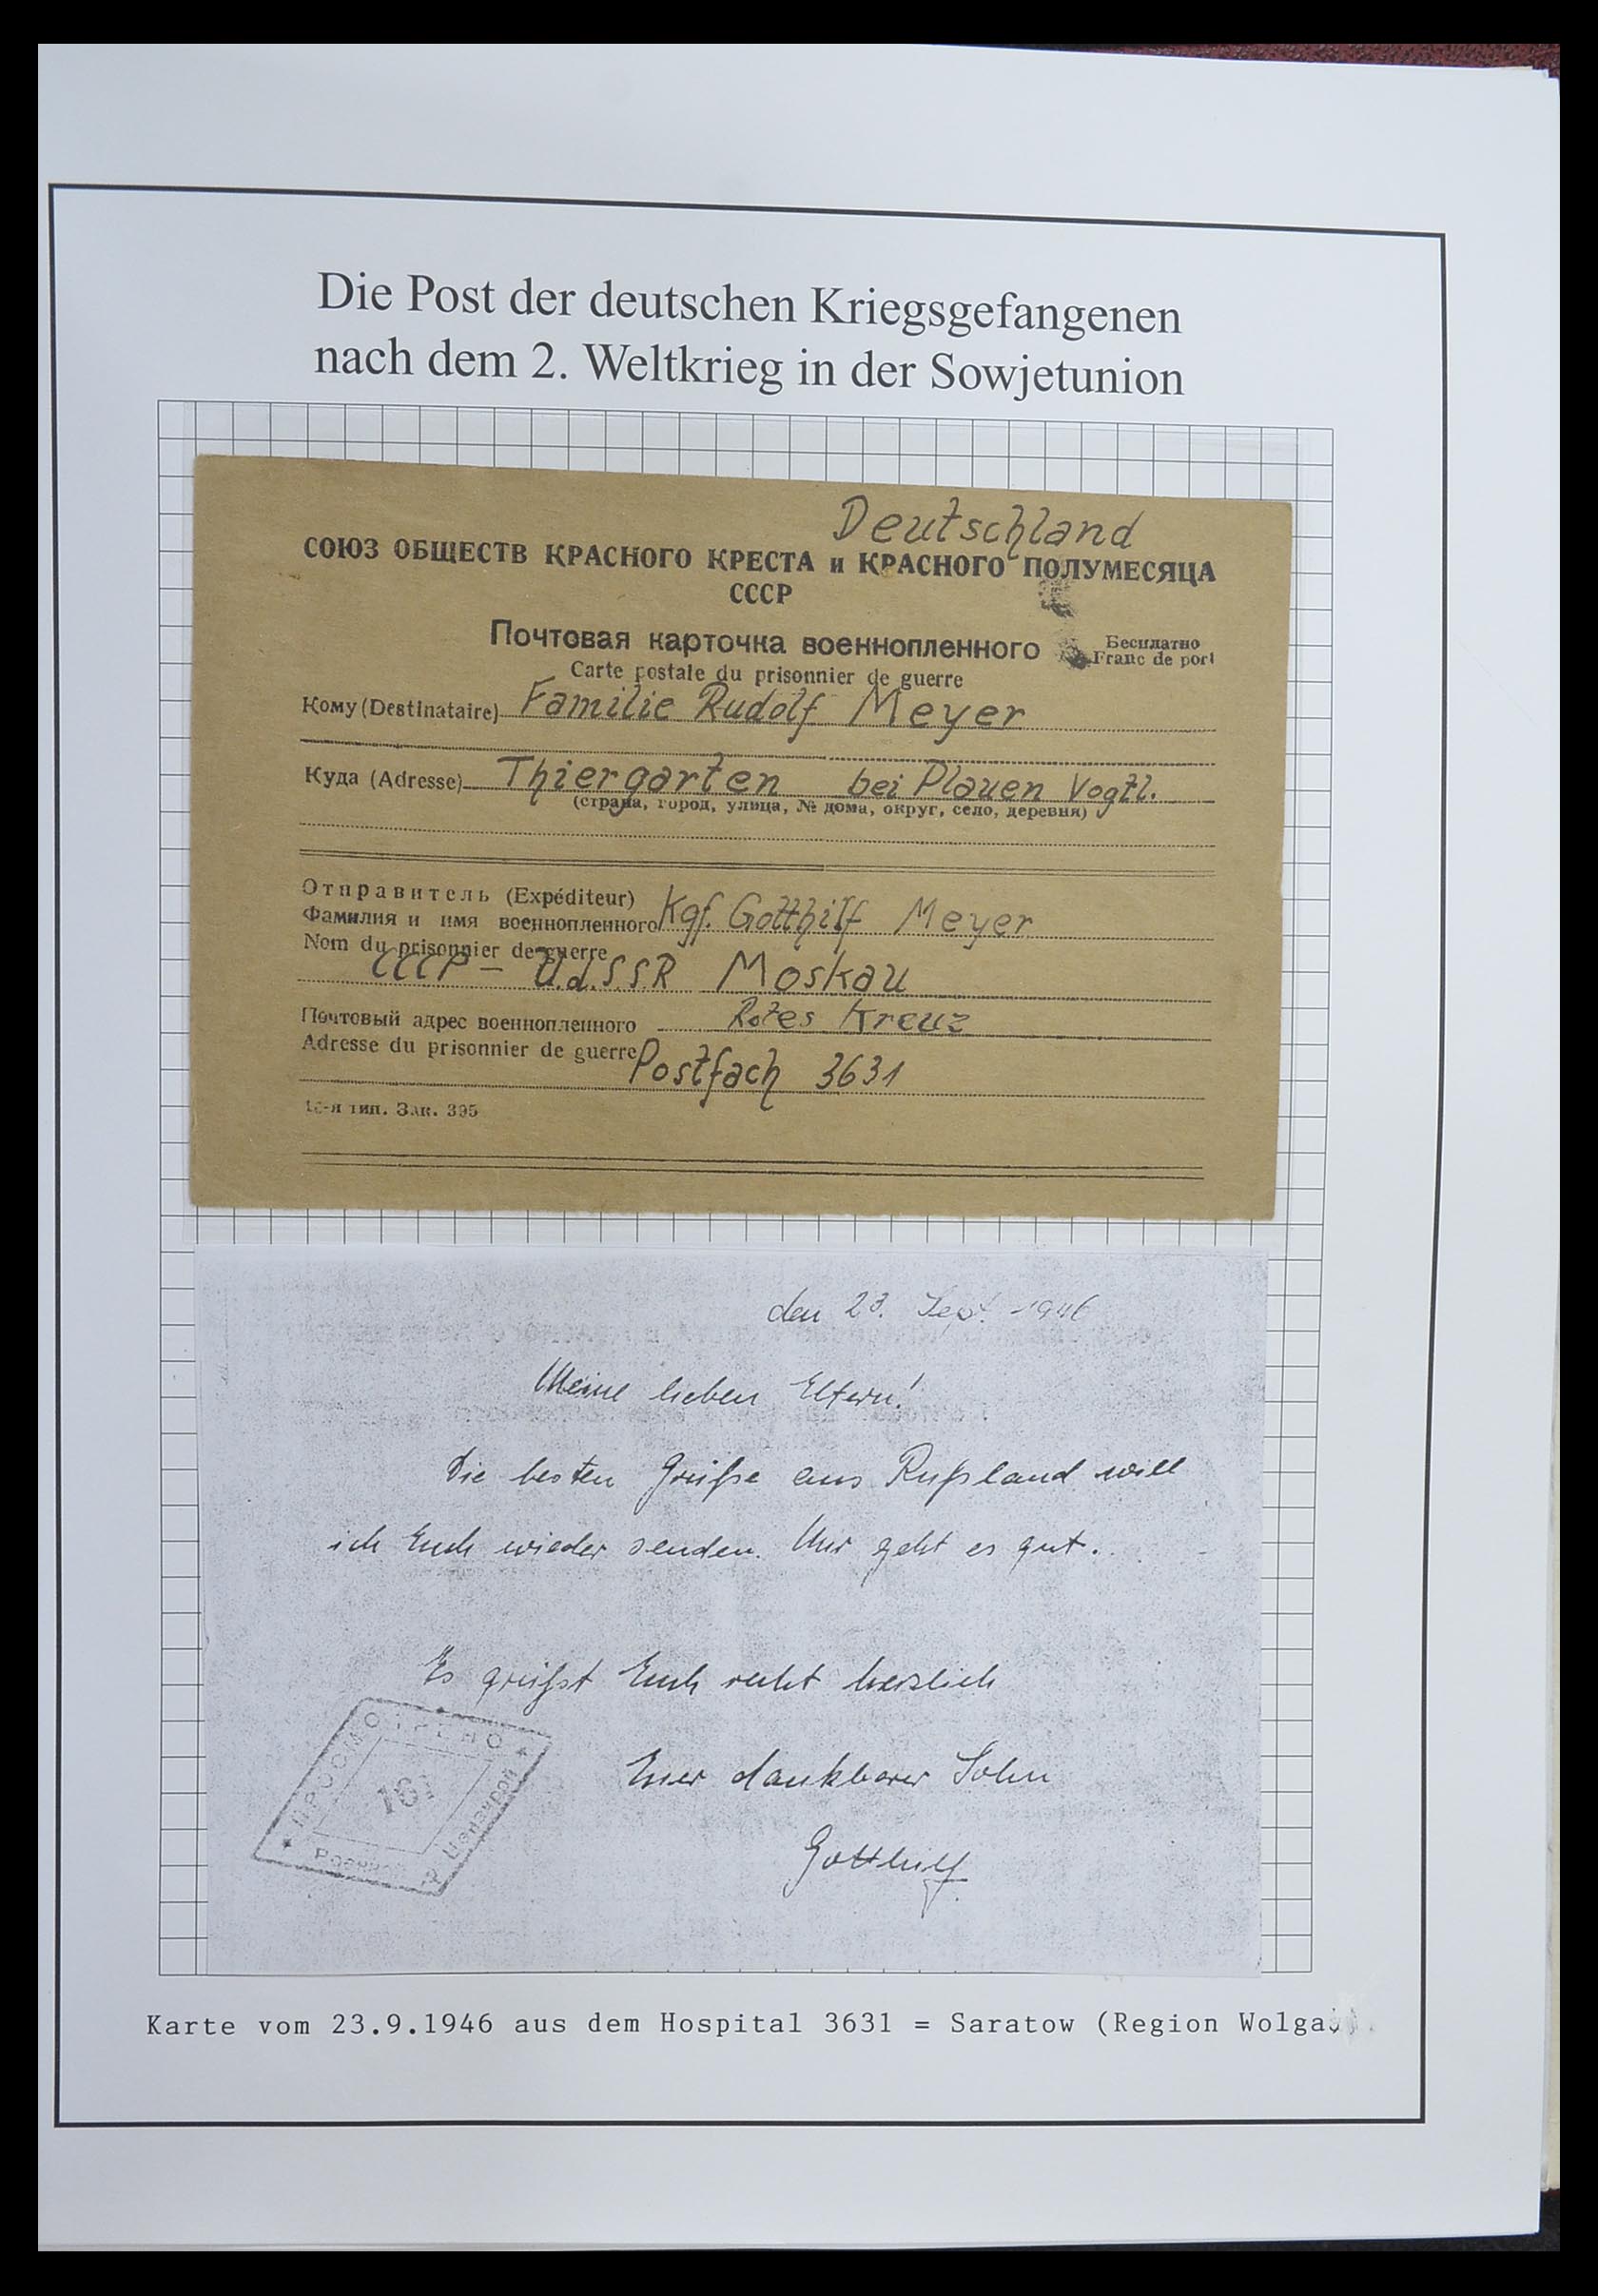 Die Post der deutschen Kriegsgefangenen
nach dem 2. Weltkrieg in der Sowjetunion
Deutschland
СОЮЗ ОБЩЕСТВ КРАСНОГО КРЕСТА и КРАСНОГО ПОЛУМЕСЯЦА
СССР
Почтовая карточка военнопленного
Бесплатно
Franc de port
Carte postale du prisonnier de guerre
Кому (Destinataire) Familie Rudolf Meyer
Куда (Adresse) Thiergarten bei Plauen Vogtl.
(страна, город, улица, № дома, округ, село, деревня)
Отправитель (Expéditeur)
Фамилия и имя военнопленного Kgf. Gotthilf Meyer
Nom du prisonnier de guerre
СССР – U.d.S.S.R Moskau
Почтовый адрес военнопленного Rotes Kreuz
Adresse du prisonnier de guerre Postfach 3631
16-я тип. Зак. 395
den 23. Sept. 1946
Meine lieben Eltern!
Die besten Grüße aus Rußland will
ich Euch wieder senden. Mir geht es gut.
Es grüßt Euch recht herzlich
Euer dankbarer Sohn
Gotthilf
ПРОСМОТРЕНО
Военной Цензурой
Karte vom 23.9.1946 aus dem Hospital 3631 = Saratow (Region Wolga)